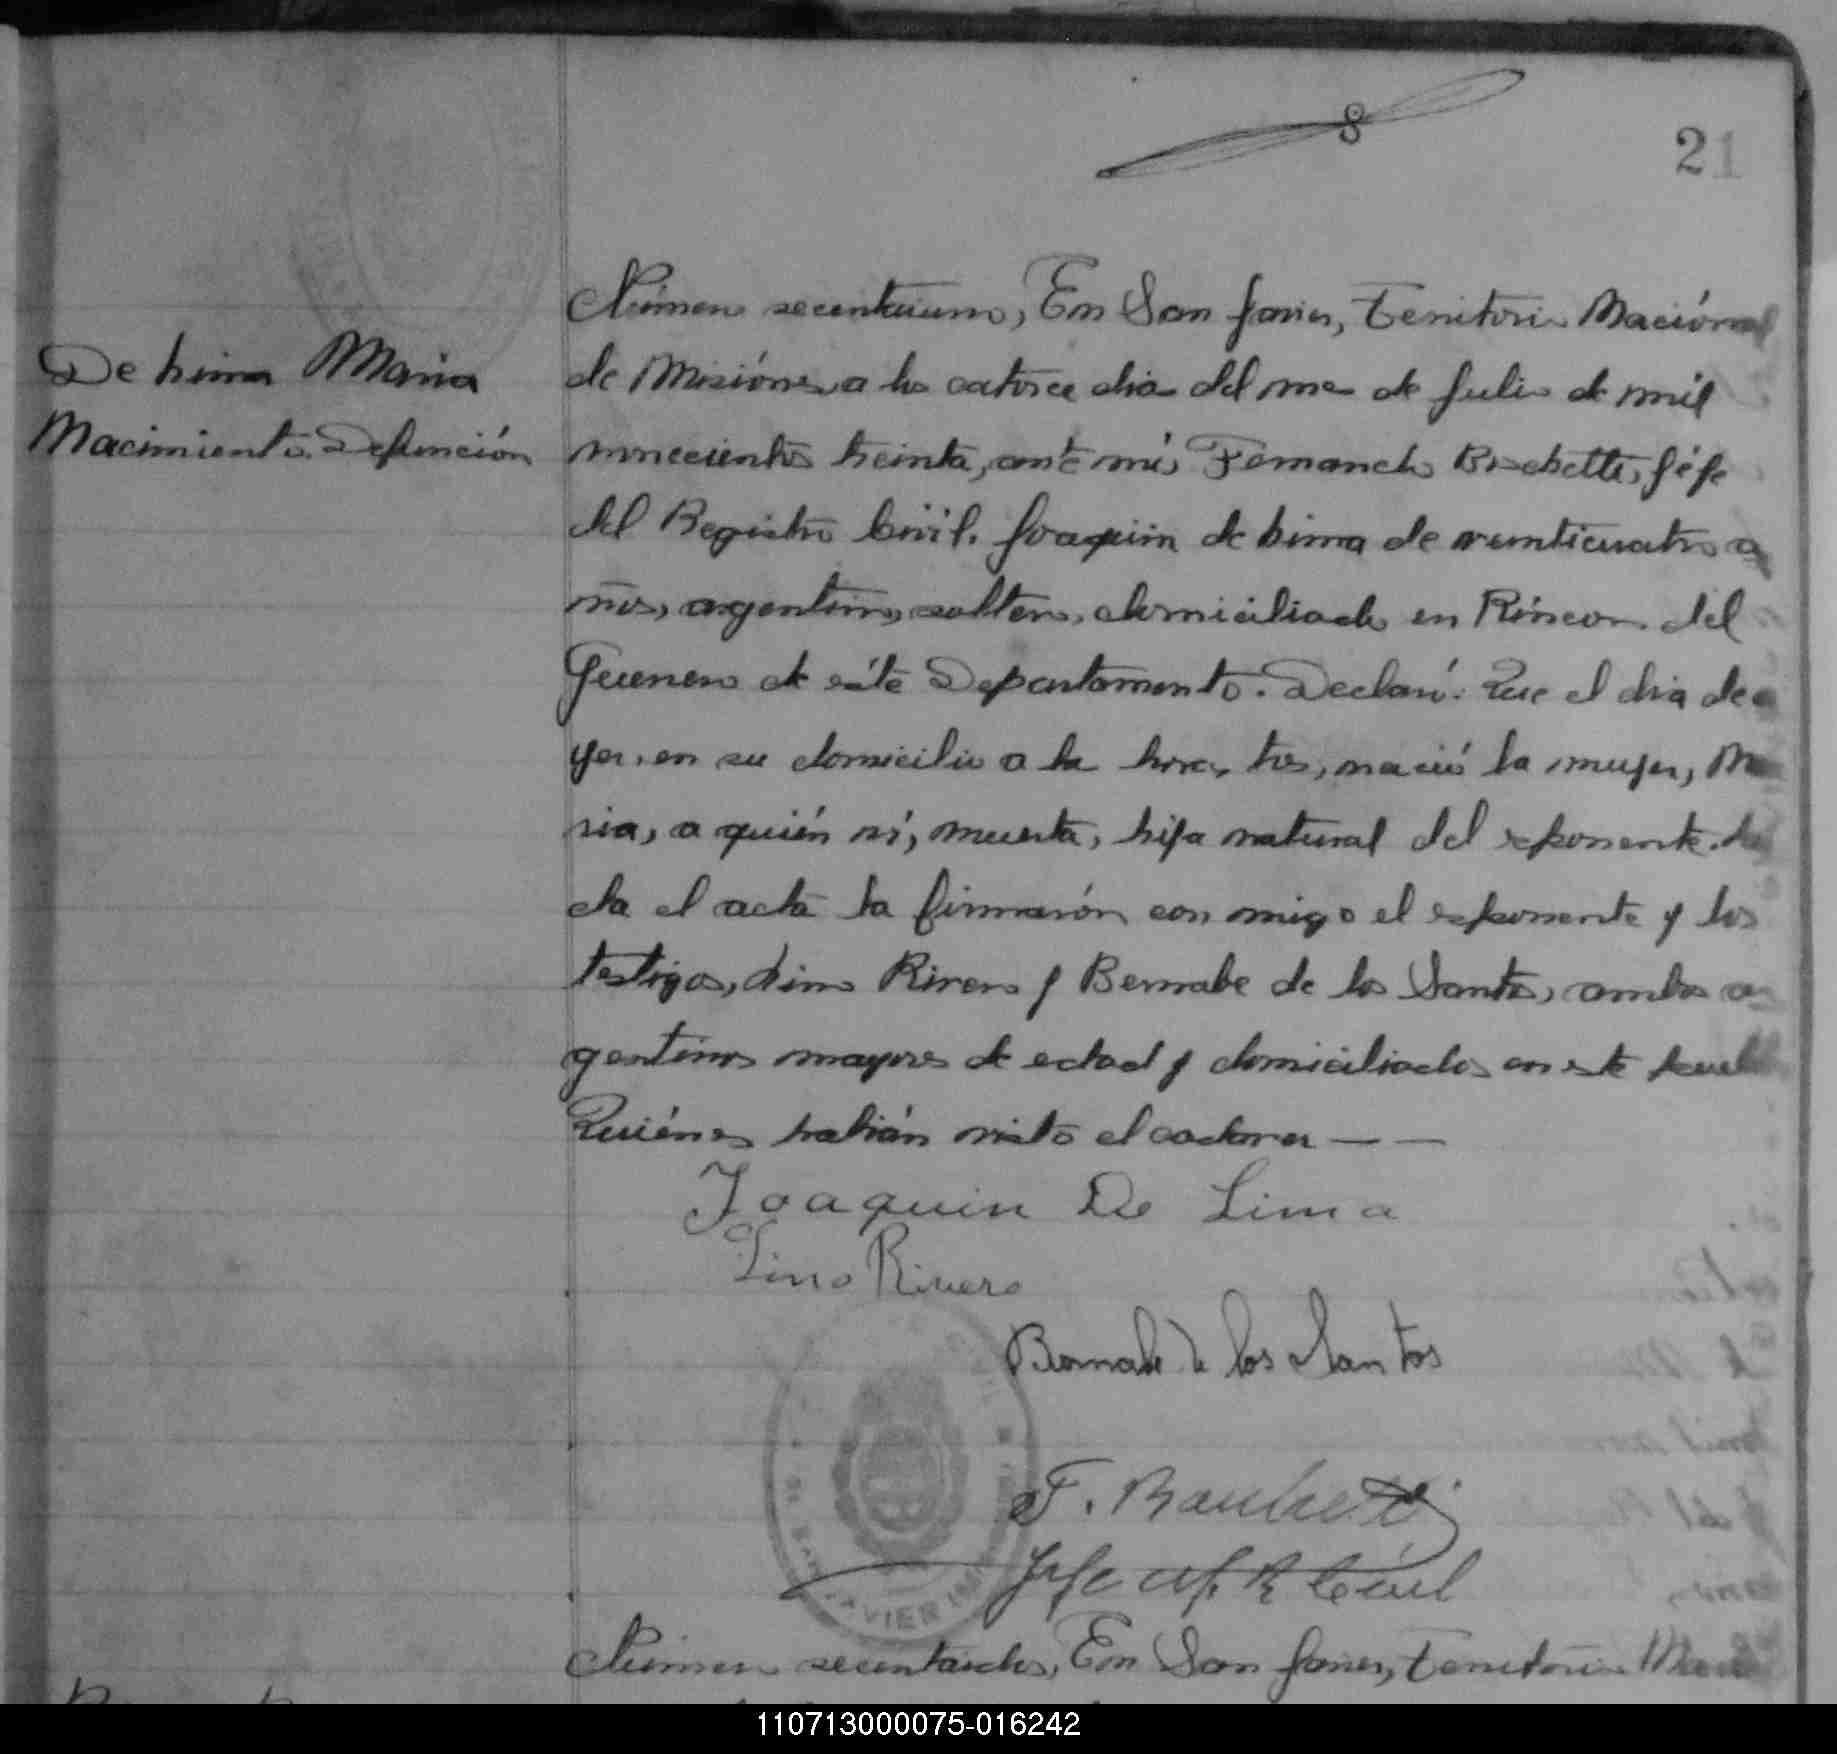 8
21
De Lima Maria
Nacimiento. Defunción
Número secentaiuno, En San Javier, Territorio Naciónal
de Misiónes a los catorce dias del mes de Julio de mil
novecientos treinta, ante mí, Fernando Jéfe
del Registro Civil. Joaquin de Lima de veinticuatro a
ños, argentino, soltero, domiciliado en Rincon del
Guerrero de éste Departamento. Declaró: Que el dia de a
yer, en su domicilio a la hora, tres, nació la mujer, Ma
ria, a quién ví, muerta, hija natural del exponente. Lei
da el acta la firmarón con migo el exponente y los
testigos, Lino Rivero y Bernabe de los Santos, ambos ar
gentinos mayores de edad y domiciliados en este pueblo
Quiénes habián visto el cadaver — —
Joaquin De Lima
Lino Rivero
Bernabe de los Santos
F.
Jefe del R. Civil
SAN JAVIER
Número secentaidos, En San Javier, Territorio Naci
110713000075-016242